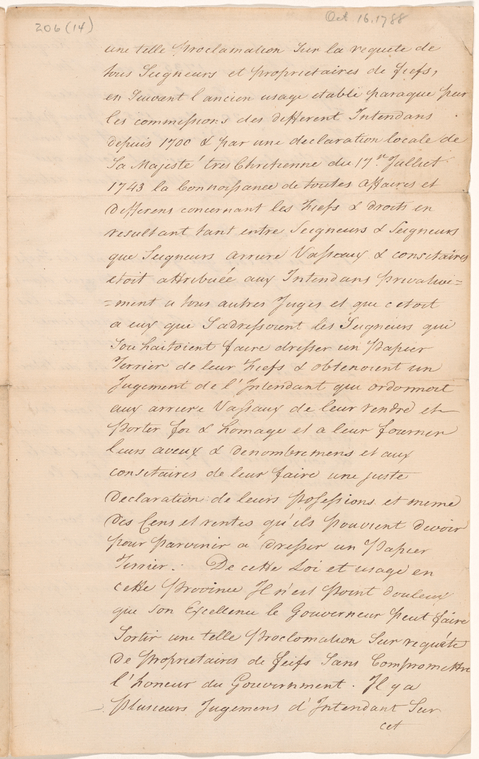 206 (14)
Oct 16. 1788
une telle Proclamation Sur la requête de
tous Seigneurs et proprietaires de fiefs,
en Suivant l'ancien usage etabli paraque par
les commissions des different Intendans
depuis 1700 & par une declaration locale de
Sa Majesté très Chretienne du 17me Juillet
1743 la Connoissance de toutes affaires et
differens concernant les Fiefs & droits en
resultant tant entre Seigneurs & Seigneurs
que Seigneurs arriere Vasseaux & censitaires
etoit attribuée aux Intendans privative=
=ment a tous autres Juges et que c'etoit
a eux que S'adressoient les Seigneurs qui
Souhaitoient faire dresser un Papier
Terrier de leur Fiefs & obtenoient un
Jugement de l'Intendant qui ordonnoit
aux arriere Vassaux de leur rendre et
Porter foi & homage et a leur fournir
leurs aveux & denombremens et aux
censitaires de leur faire une juste
declaration de leurs possessions et meme
des Cens et rentes qu'ils pouvoient devoir
pour parvenir a dresser un Papier
Terrier. De cette Loi et usage en
cette Province Il n'est point douteux
que son Excellence le Gouverneur peut faire
Sortir une telle Proclamation Sur requête
de Proprietaires de feifs Sans Compromettre
l'honeur du Gouvernment. Il y a
Plusieurs Jugemens d'Intendant Sur
cet